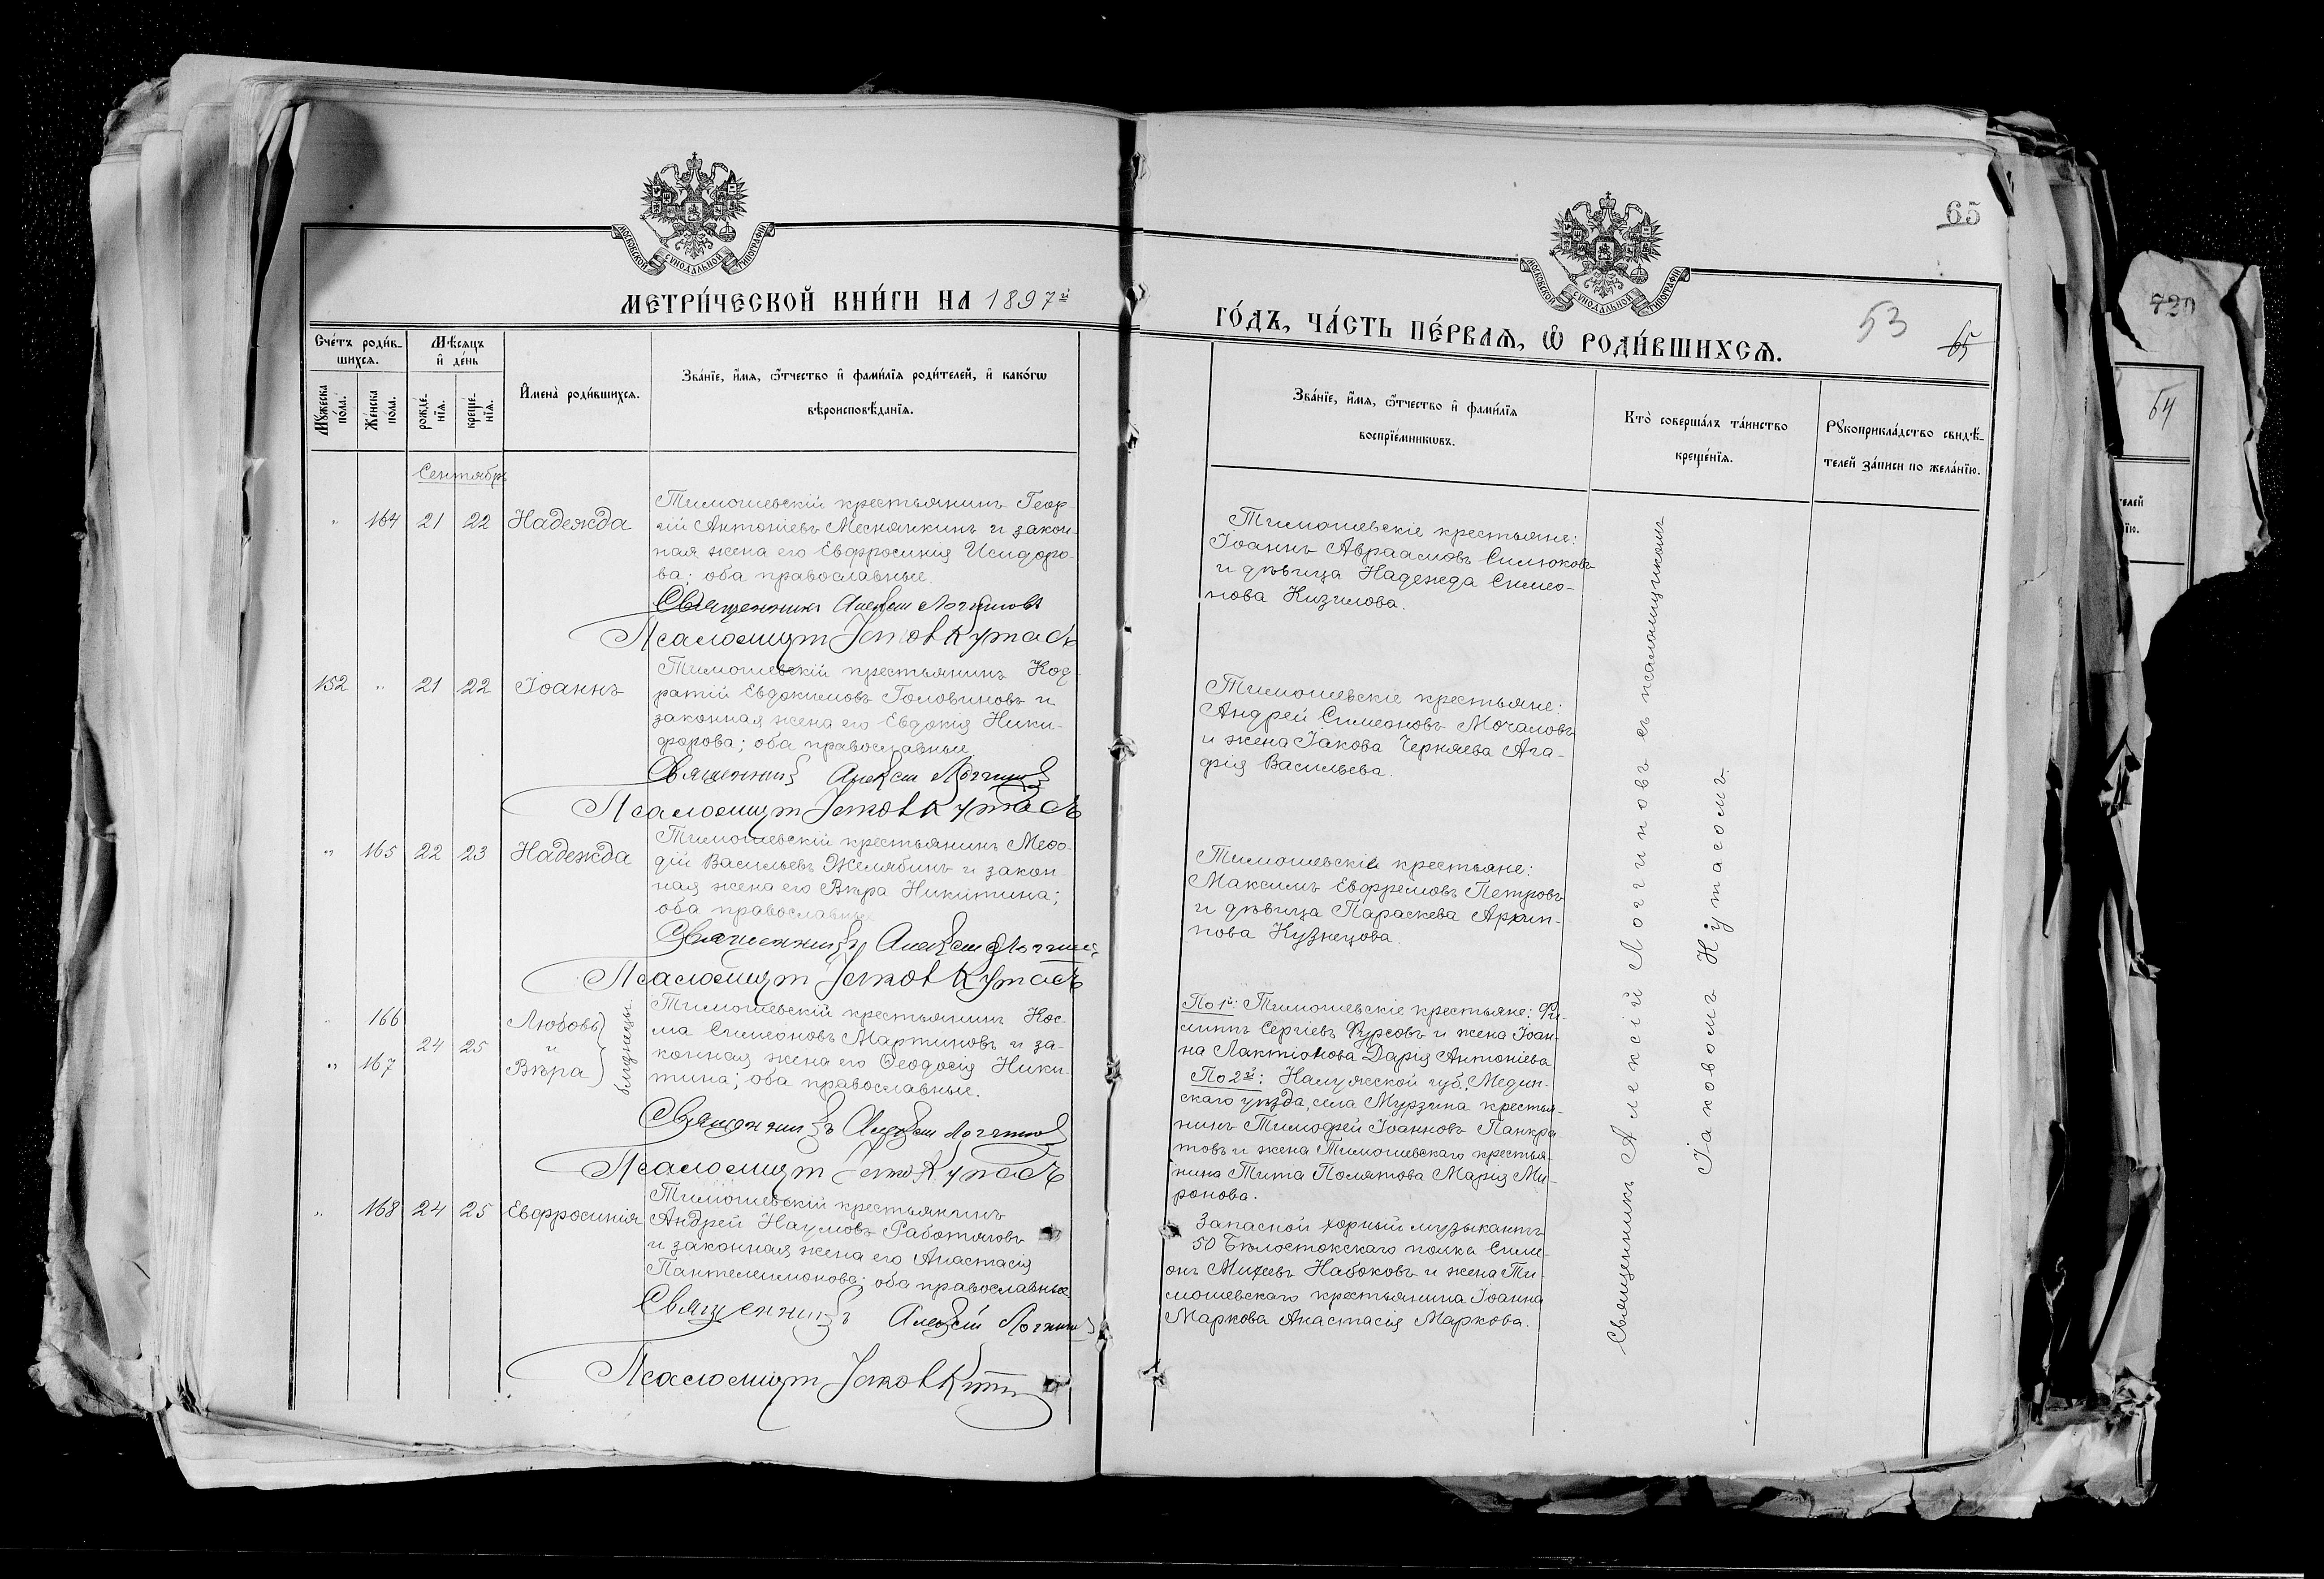 65
МОСКОВСКОЙ СѴНОДАЛЬНОЙ ТИПОГРАФІИ
МОСКОВСКОЙ СѴНОДАЛЬНОЙ ТИПОГРАФІИ
МЕТРИ́ЧЕСКОЙ КНИ́ГИ НА 1897й
ГО́ДЪ, ЧА́СТЬ ПЕ́РВАѦ, Ѽ РОДИ́ВШИХСѦ.
53
65
Сче́тъ роди́в-
шихсѧ.
Мꙋ́жеска
по́ла.
Же́нска
по́ла.
Мѣ́сѧцъ
и҆ де́нь
рожде́-
нїѧ.
креще́-
нїѧ.
И҆мена̀ роди́вшихсѧ.
Зва́нїе, и҆́мѧ, ѻ҆́тчество и҆ фами́лїѧ роди́телей, и҆ како́гѡ
вѣроисповѣ́данїѧ.
Зва́нїе, и҆́мѧ, ѻ҆́тчество и҆ фами́лїѧ
воспрїе́мникѡвъ.
Кто̀ соверша́лъ та́инство
креще́нїѧ.
Рꙋкоприкла́дство свидѣ́-
телей за́писи по жела́нїю.
Сентябрь
" 164 21 22 Надежда
Тимошевскій крестьянинъ Геор
гій Антоніевъ Меснянкинъ и закон-
ная жена его Евфросинія Исидоро-
ва; оба православные.
Священникъ Алексій Логгиновъ
Псаломщ Іаковъ Кутасъ
Тимошевскіе крестьяне:
Іоаннъ Авраамовъ Силюковъ
и дѣвица Надежда Симео-
нова Кизилова.
152 " 21 22 Іоаннъ
Тимошевскій крестьянинъ Код-
ратій Евдокимовъ Головиновъ и
законная жена его Евдокія Ники-
форова; оба православные
Священникъ Алексій Логгиновъ
Псаломщ Іаковъ Кутасъ
Тимошевскіе крестьяне:
Андрей Симеоновъ Мочаловъ
и жена Іакова Черняева Ага-
фія Васильева.
" 165 22 23 Надежда
Тимошевскій крестьянинъ Меѳо-
дій Васильевъ Желябинъ и закон-
ная жена его Вѣра Никитина;
оба православные
Священникъ Алексій Логгиновъ
Псаломщ Іаковъ Кутасъ
Тимошевскіе крестьяне:
Максимъ Евфремовъ Петровъ
и дѣвица Параскева Архип-
пова Кузнецова.
" 166
" 167
24 25
Любовь
и
Вѣра
близнецы.
Тимошевскій крестьянинъ Кос-
ма Симеоновъ Мартиновъ и за-
конная жена его Ѳеодосія Ники-
тина; оба православные.
Священникъ Алексій Логгиновъ
Псаломщ Іаковъ Кутасъ
По 1й: Тимошевскіе крестьяне: Фи-
липпъ Сергіевъ Фурсовъ и жена Іоан-
на Лактіонова Дарія Антоніева
По 2й: Калужской губ. Медын-
скаго уѣзда, села Мурзина крестья-
нинъ Тимофей Іоанновъ Панкра
товъ и жена Тимошевскаго крестья-
нина Тита Полятова Марія Ми-
ронова.
" 168 24 25 Евфросинія
Тимошевскій крестьянинъ
Андрей Наумовъ Работяговъ
и законная жена его Анастасія
Пантелеимонова; оба православные
Священникъ Алексій Логгиновъ
Псаломщ Іаковъ
Запасной хорный музыкантъ
50 Бѣлостокскаго полка Симе-
онъ Михеевъ Набоковъ и жена Ти-
мошевскаго крестьянина Іоанна
Маркова Анастасія Маркова.
Священникъ Алексій Логгиновъ съ псаломщикомъ
Іаковомъ Кутасомъ.
720
64